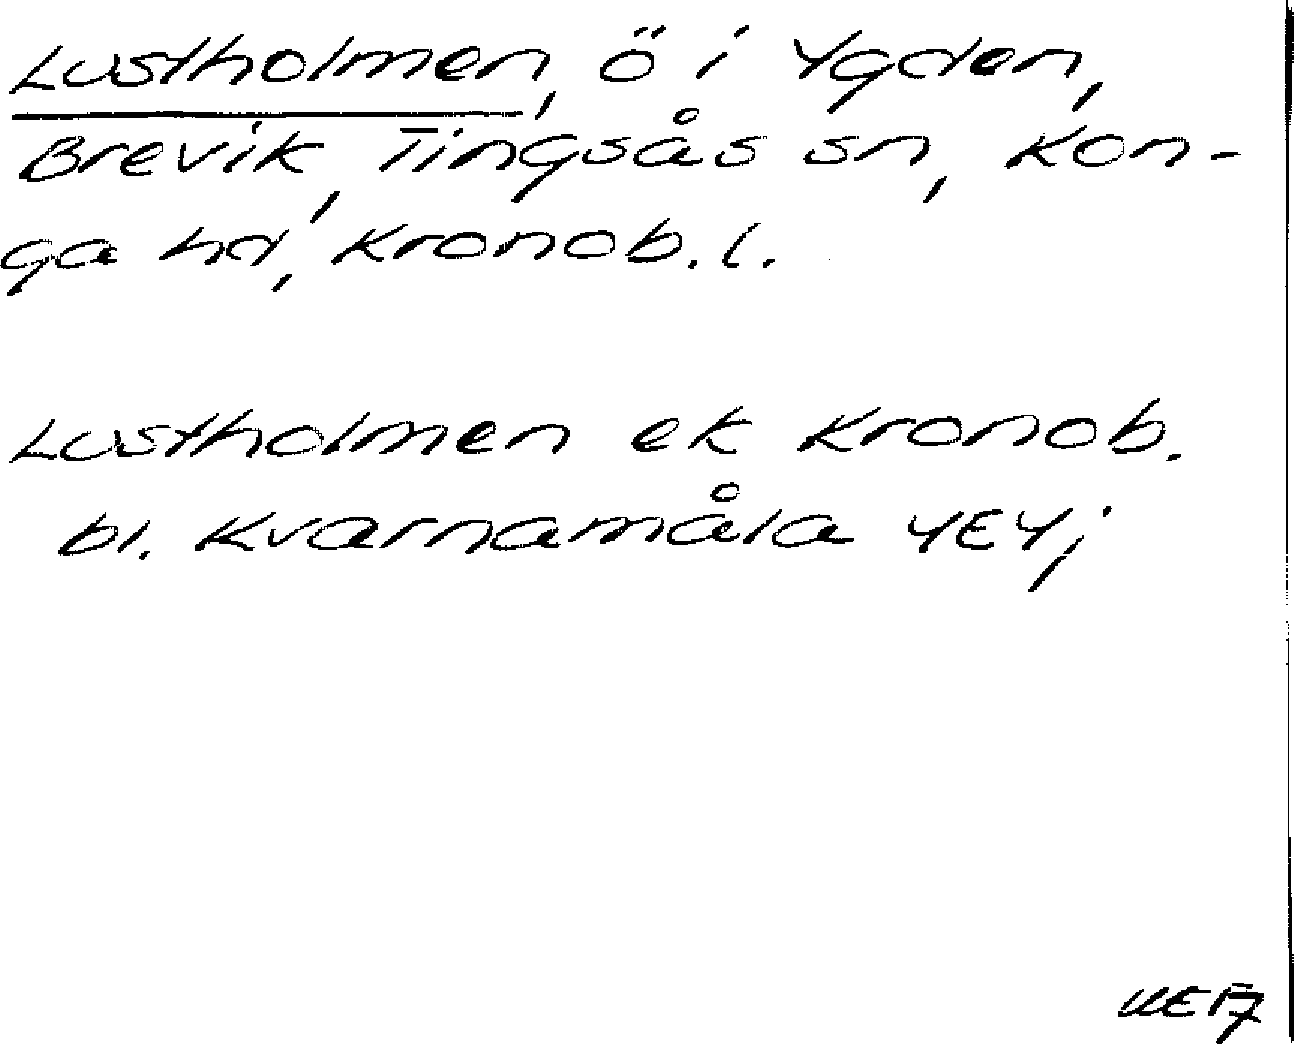 Lustholmen, ö i Ygden,
Brevik, Tingsås sn, Kon-
ga hd, Kronob. l.
Lustholmen ek Kronob.
bl. Kvarnamåla YEY;